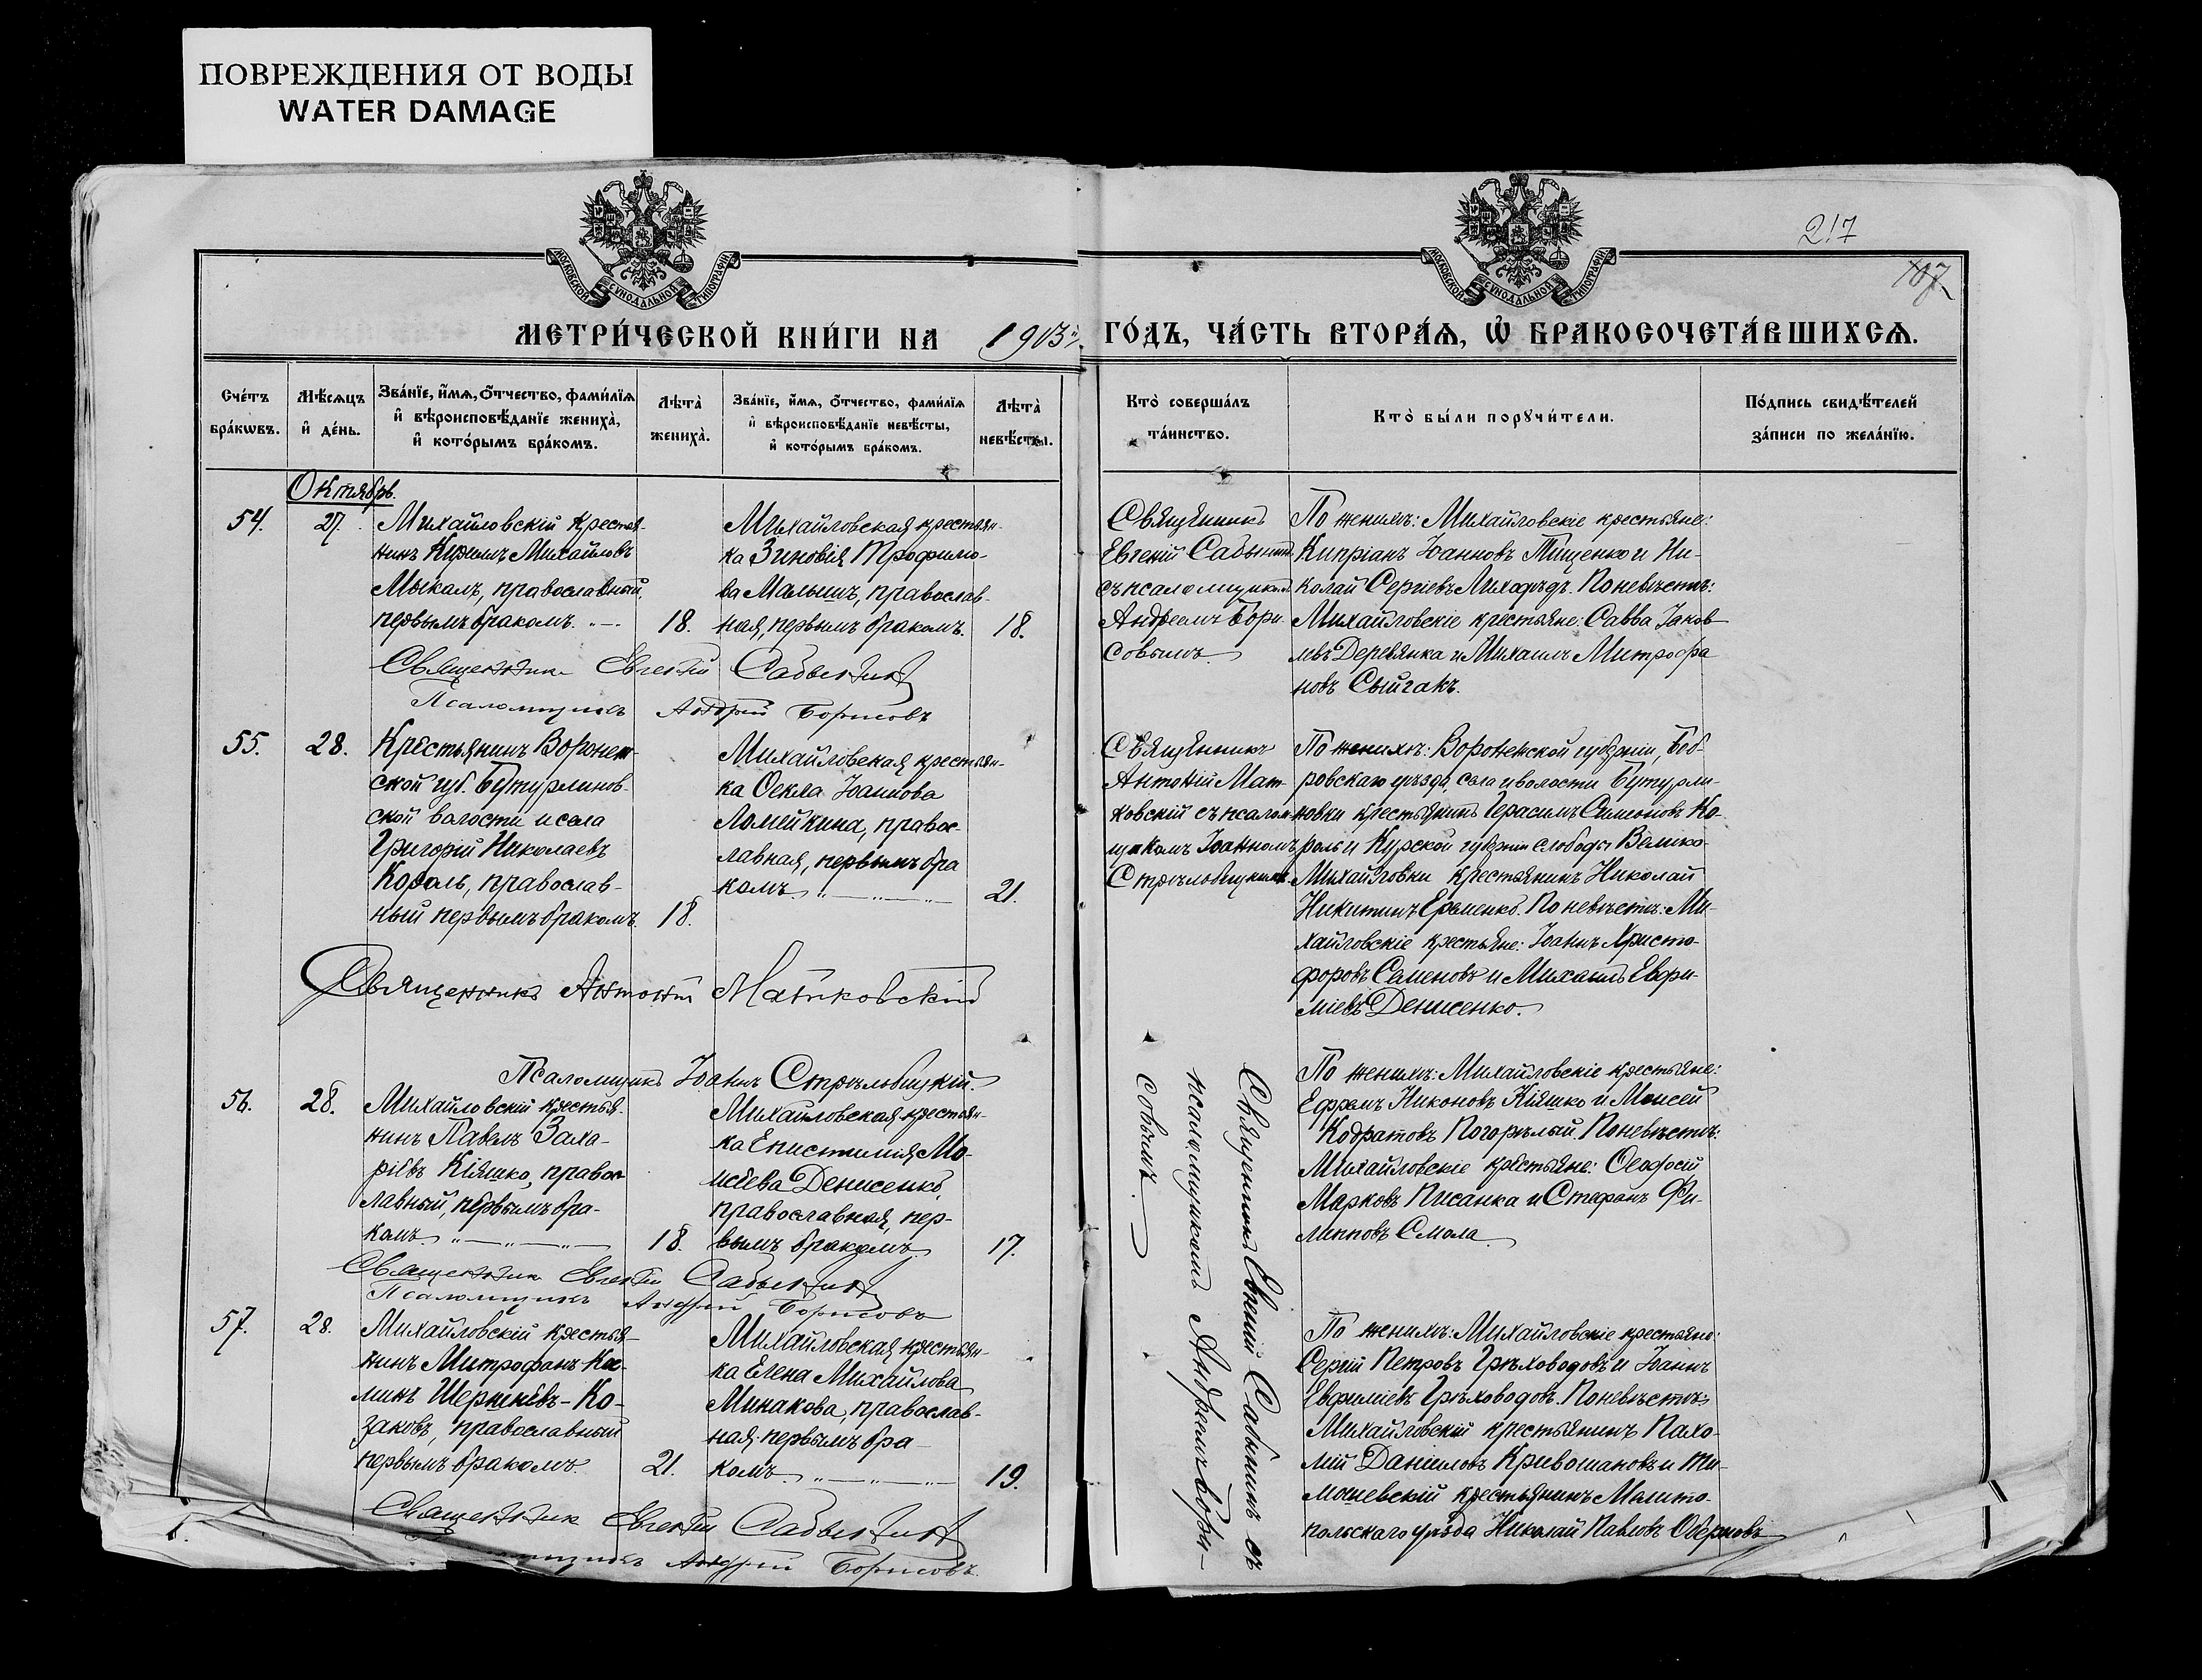 ПОВРЕЖДЕНИЯ ОТ ВОДЫ
WATER DAMAGE
217
107
МОСКОВСКОЙ СѴНОДАЛЬНОЙ ТИПОГРАФІИ
МОСКОВСКОЙ СѴНОДАЛЬНОЙ ТИПОГРАФІИ
МЕТРИ́ЧЕСКОЙ КНИ́ГИ НА 1903й ГО́ДЪ, ЧА́СТЬ ВТОРА́Ѧ, Ѽ БРАКОСОЧЕТА́ВШИХСѦ.
Сче́тъ
бра́кѡвъ.
Мѣ́сяцъ
и҆ де́нь.
Зва́нїе, и҆́мѧ, ѻ҆́тчество, фами́лїѧ
и҆ вѣроисповѣ́данїе жениха̀,
и҆ кото́рымъ бра́комъ.
Лѣ́та̀
жениха̀.
Зва́нїе, и҆́мѧ, ѻ҆́тчество, фами́лїѧ
и҆ вѣроисповѣ́данїе невѣ́сты,
и҆ кото́рымъ бра́комъ.
Лѣ́та̀
невѣ́сты.
Кто̀ соверша́лъ
та́инство.
Кто̀ бы́ли порꙋчи́тели.
По́дпись свидѣ́телей
за́писи по жела́нїю.
Октябрь.
54.
27.
Михайловскій крестья-
нинъ Михайловъ
Мыкалъ, православный,
первымъ бракомъ.
18.
Михайловская крестьян-
ка Зиновія Трофимо-
ва Малышъ, православ-
ная, первымъ бракомъ.
18.
Священникъ
Евгеній Сабынинъ
съ псаломщикомъ
Андреемъ Бори-
совымъ.
По женихѣ: Михайловскіе крестьяне:
Кипріанъ Іоанновъ Тищенко и Ни-
колай Сергіевъ Лиходѣдъ. По невѣстѣ:
Михайловскіе крестьяне: Савва Іаков-
левъ Деревянка и Михаилъ Митрофа
новъ Свийгакъ.
Священникъ Евгеній Сабынинъ
Псаломщикъ Андрей Борисовъ
55.
28.
Крестьянинъ Воронеж-
ской губ. Бутурлинов-
ской волости и села
Григорій Николаевъ
Король, православ-
ный первымъ бракомъ.
18.
Михайловская крестьян-
ка Ѳекла Іоаннова
Ломейкина, правос-
лавная, первымъ бра
комъ.
21.
Священникъ
Антоній Мат-
ковскій съ псалом-
щикомъ Іоанномъ
Стрѣльбицкимъ.
По женихѣ: Воронежской губерніи, Боб-
ровскаго уѣзда, села и волости Бутурли-
новки крестьянинъ Герасимъ Симеоновъ Ко-
роль и Курской губерніи слободы Велико-
Михайловки крестьянинъ Николай
Никитинъ Еременко. По невѣстѣ: Ми-
хайловскіе крестьяне: Іоаннъ Христо-
форовъ Семеновъ и Михаилъ Евфи-
міевъ Денисенко.
Священникъ Антоній Матковскій
Псаломщикъ Іоаннъ Стрѣльбицкій.
56.
28.
Михайловскій крестья-
нинъ Павелъ Заха-
ріевъ Кіяшко, правос-
лавный, первымъ бра-
комъ.
18.
Михайловская крестьян-
ка Епистимія Мо-
исеева Денисенко,
православная, пер-
вымъ бракомъ.
17.
Священникъ Евгеній Сабынинъ съ
псаломщикомъ Андреемъ Бори-
совымъ.
По женихѣ: Михайловскіе крестьяне:
Ефремъ Никоновъ Кіяшко и Моисей
Кодратовъ Погорѣлый. По невѣстѣ:
Михайловскіе крестьяне: Ѳеодосій
Марковъ Писанка и Стефанъ Фи-
липповъ Смола.
Священникъ Евгеній Сабынинъ
Псаломщикъ Андрей Борисовъ
57.
28.
Михайловскій крестья-
нинъ Митрофанъ
Шершневъ-Ко-
заковъ, православный
первымъ бракомъ.
21.
Михайловская крестьян-
ка Елена Михайлова
Минакова, православ-
ная первымъ бра-
комъ.
19.
По женихѣ: Михайловскіе крестьяне:
Сергій Петровъ Грѣховодовъ и Іоаннъ
Евфиміевъ Грѣховодовъ. По невѣстѣ:
Михайловскій крестьянинъ Пахо-
мій Даніиловъ Кривошаповъ и Ти-
мошевскій крестьянинъ Мелито-
польскаго уѣзда Николай Павловъ
Священникъ Евгеній Сабынинъ
Андрей Борисовъ.